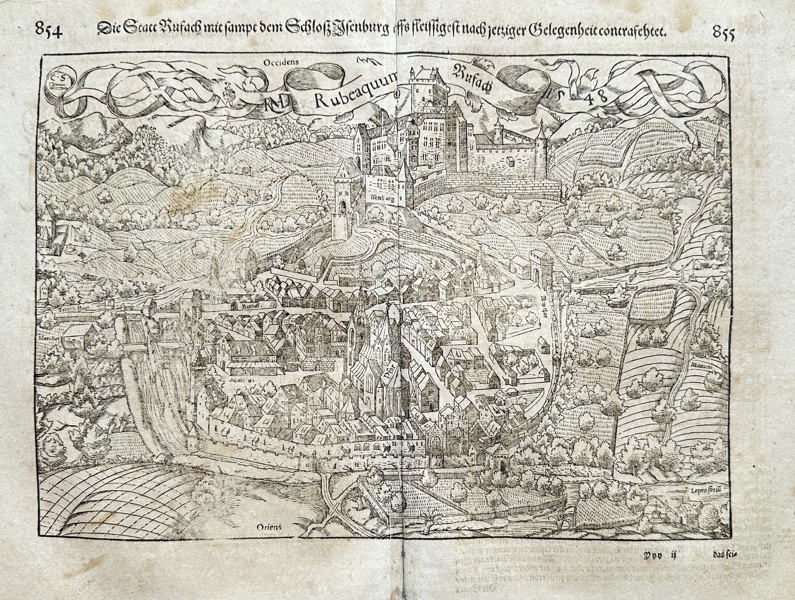 854 Die Statt Rufach mit sampt dem Schloß Isenburg auffs fleissigest nach jetziger Gelegenheit contrafehtet. 855
Occidens
C S
RMD
Rubeaquum
Rufach
1548
Isenburg
Oriens
Leprosorium
Vyy ij
das sei⸗